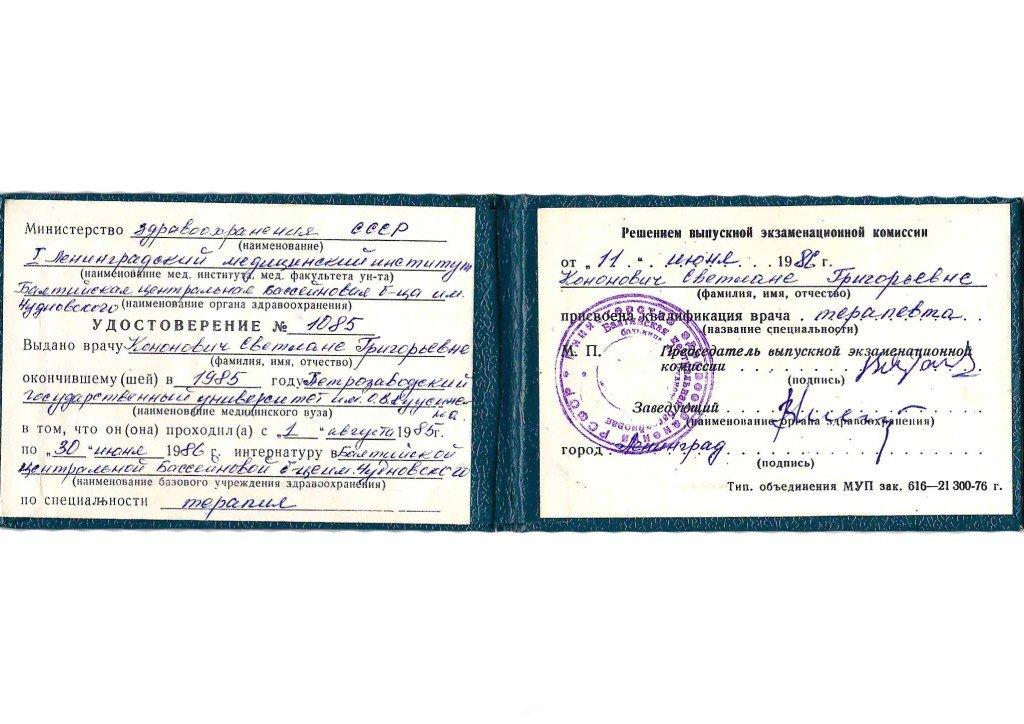 Министерство здравоохранения СССР
(наименование)
I Ленинградский медицинский институт
(наименование мед. института, мед. факультета ун-та)
Балтийская центральная бассейновая б-ца им.
Чудновского (наименование органа здравоохранения)
УДОСТОВЕРЕНИЕ № 1085
Выдано врачу Кононович Светлане Григорьевне
(фамилия, имя, отчество)
окончившему (шей) в 1985 году Петрозаводский
государственный университет им. О.В. Куусинена
(наименование медицинского вуза)
в том, что он (она) проходил(а) с "1" августа 1985г.
по "30" июня 1986 г. интернатуру в Балтийской
центральной Бассейновой б-це им. Чудновского
(наименование базового учреждения здравоохранения)
по специальности терапия
Решением выпускной экзаменационной комиссии
от "11" июня 1986 г.
Кононович Светлане Григорьевне
(фамилия, имя, отчество)
присвоена квалификация врача терапевта
(название специальности)
М. П. Председатель выпускной экзаменационной
комиссии
(подпись)
Заведующий
(наименование органа здравоохранения)
город Ленинград
(подпись)
Тип. объединения МУП зак. 616—21 300-76 г.
Министерство здравоохранения РСФСР
Балтийская центральная бассейновая
больница